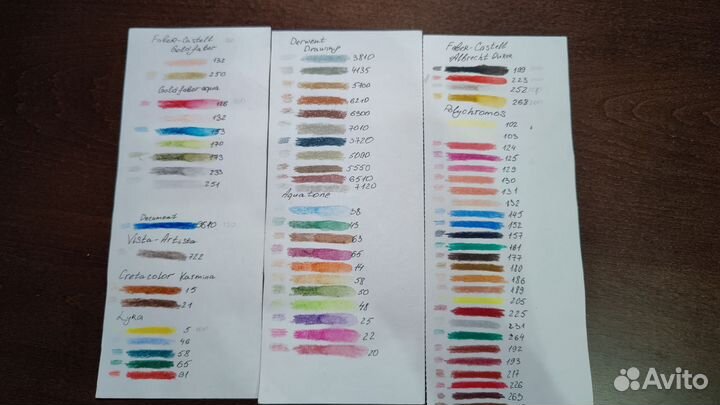 Faber-Castell
Goldfaber
132
250
Goldfaber aqua
126
132
153
170
173
233
251
Derwent
3610
Vista-Artista
722
Cretacolor Karmina
15
21
Lyra
5
46
58
65
91
Derwent
Drawing
3810
4135
5700
6210
6300
7010
3720
5090
5550
6510
7120
Aquatone
38
43
63
65
14
58
50
48
25
22
20
Faber-Castell
Albrecht Dürer
199
223
252
268
Polychromos
102
103
124
125
129
130
131
132
145
152
157
161
177
180
186
189
205
225
231
264
192
193
217
226
263
Avito